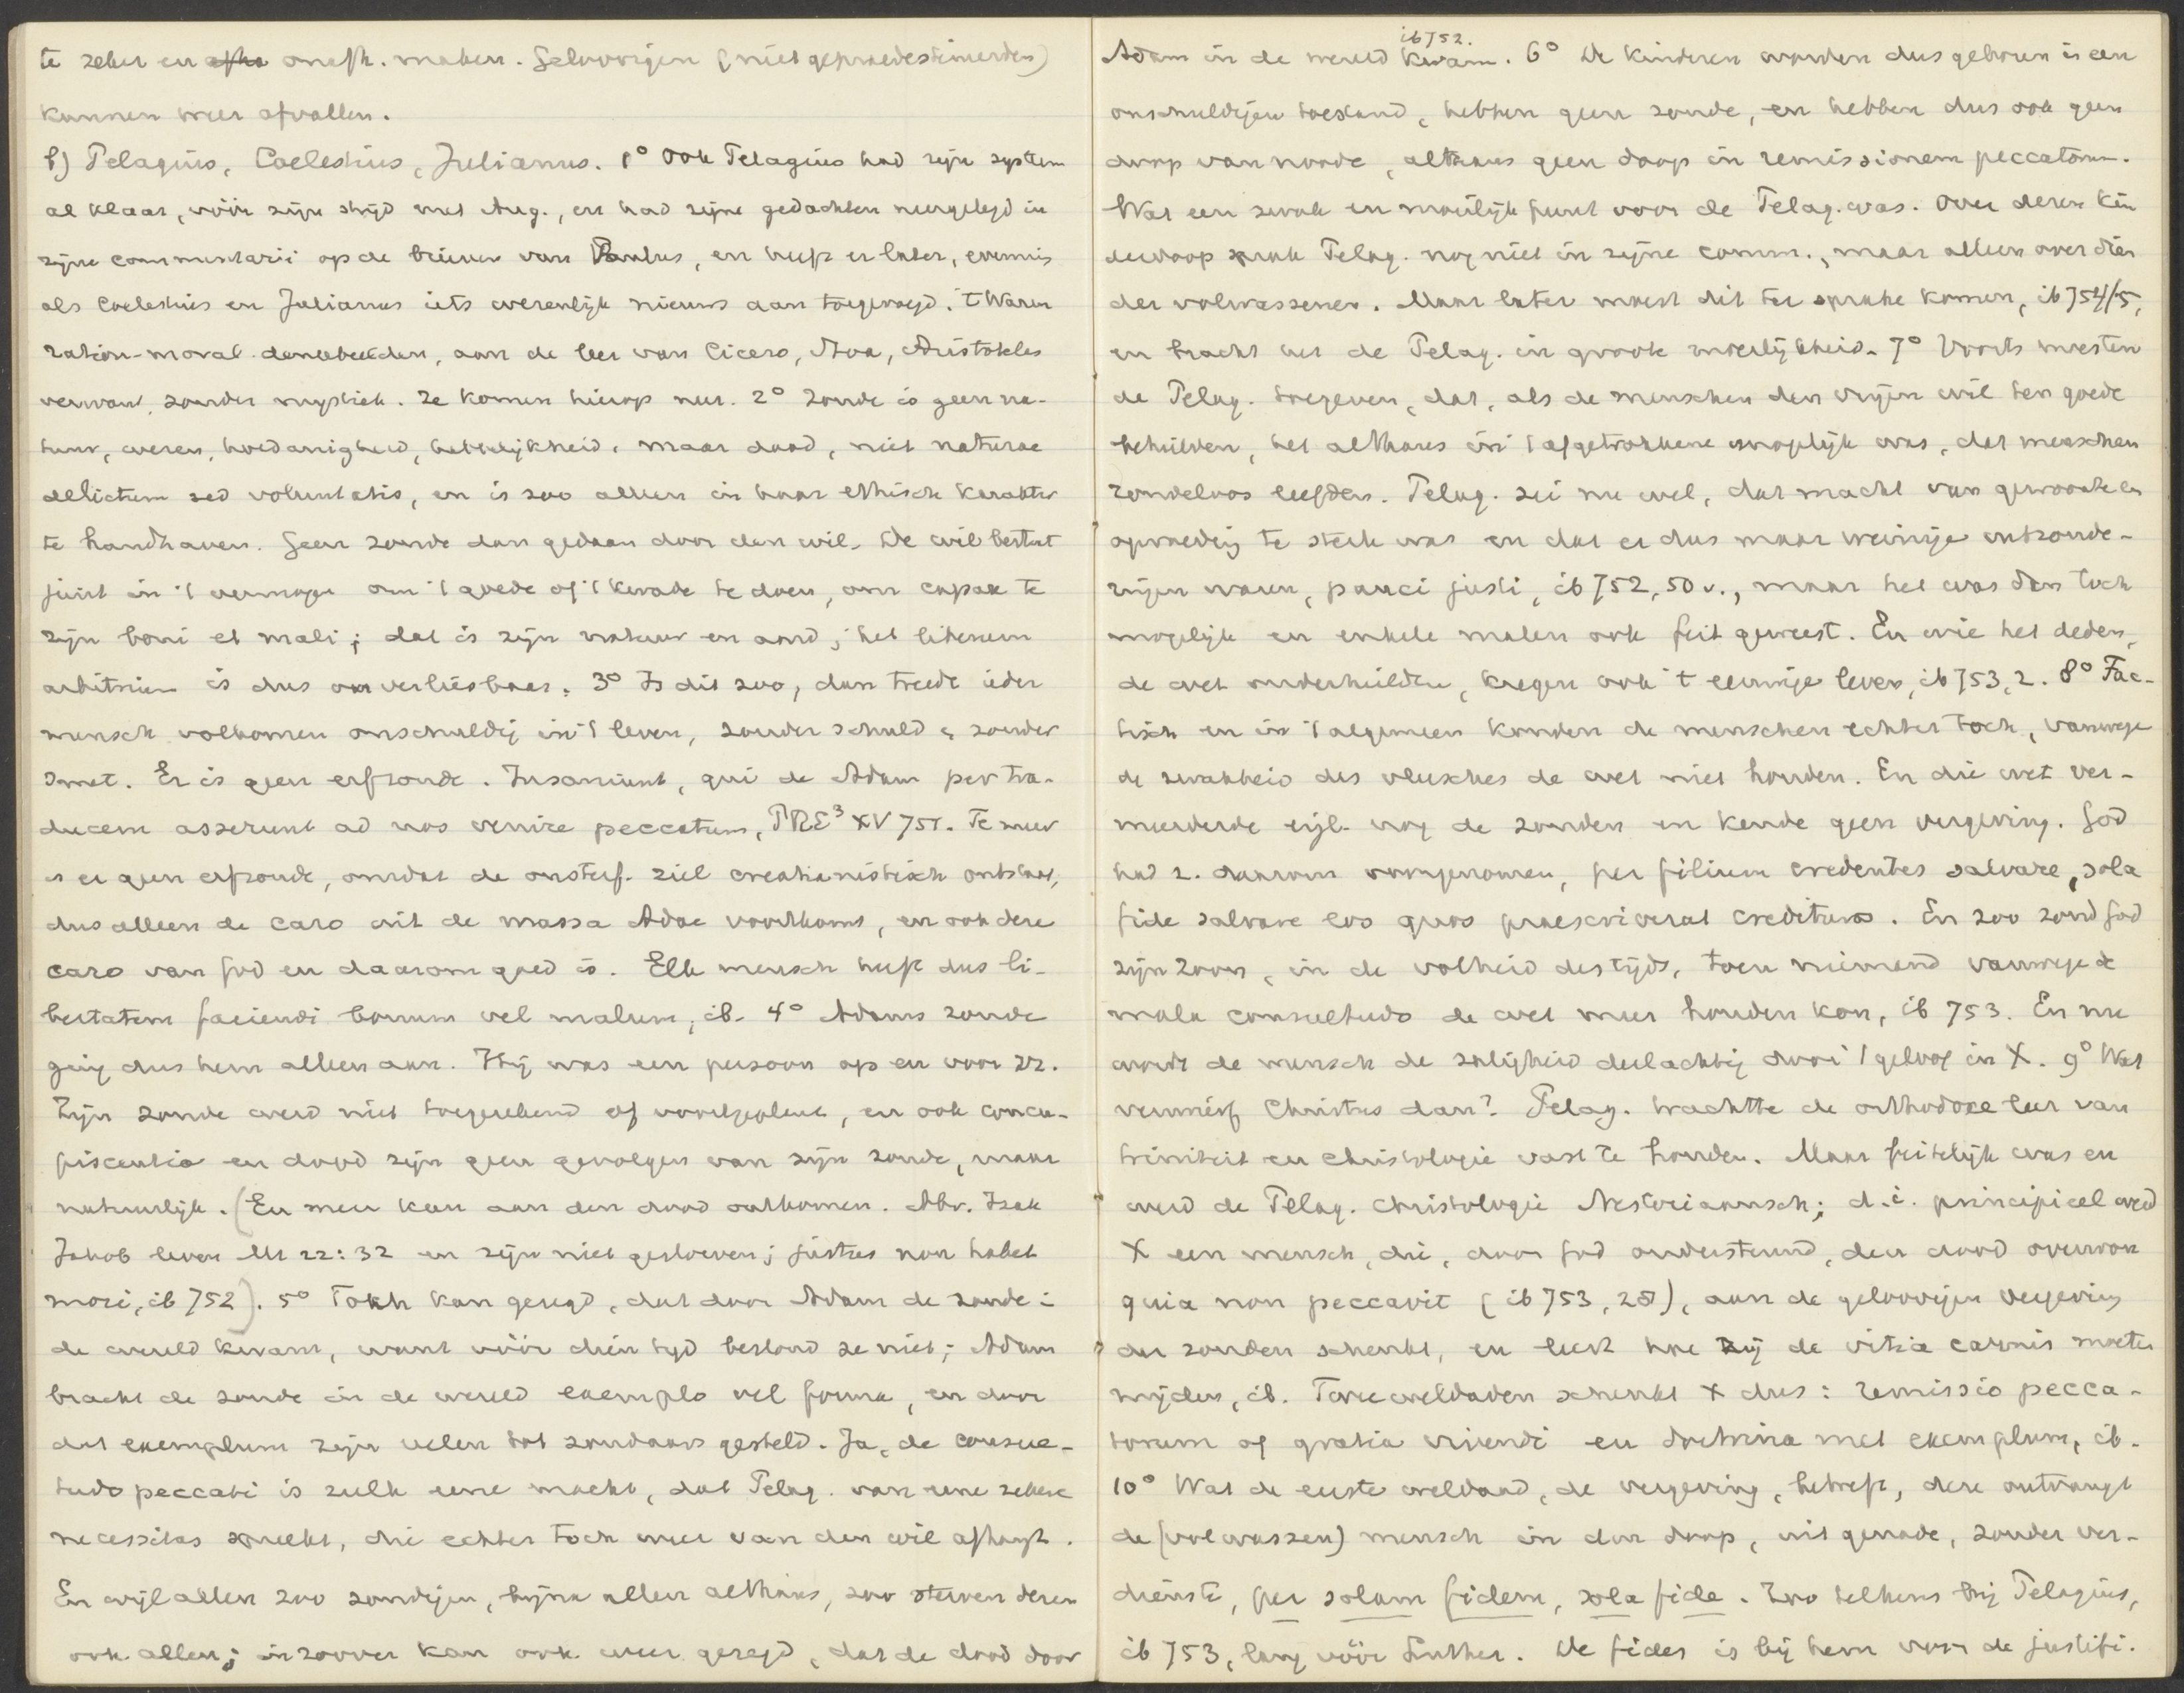 te zeker en onafh. maken. Geloovigen (niet gepraedestineerden)
kunnen weer afvallen.
f) Pelagius, Coelestius, Julianus. 1° Ook Pelagius had zijn systeem
al klaar, vóór zijn strijd met Aug., en had zijne gedachten neergelegd in
zijne commentarii op de brieven van Paulus, en heeft er later, evenmin
als Coelestius en Julianus iets wezenlijk nieuws aan toegevoegd. 't Waren
ration-moral. denkbeelden, aan de leer van Cicero, Stoa, Aristoteles
verwant, zonder mystiek. Ze komen hierop neer. 2° Zonde is geen na-
tuur, wezen, hoedanigheid, hebbelijkheid, maar daad, niet naturae
delictum sed voluntatis, en is zoo alleen in haar ethisch karakter
te handhaven. Geen zonde dan gedaan door den wil. De wil bestaat
juist in 't vermogen om 't goede of 't kwade te doen, om capax te
zijn boni et mali; dat is zijn natuur en aard; het liberum
arbitrium is dus onverliesbaar. 3° Is dit zoo, dan treedt ieder
mensch volkomen onschuldig in 't leven, zonder schuld & zonder
smet. Er is geen erfzonde. Insaniunt, qui de Adam per tra-
ducem asserunt ad nos venire peccatum, PRE³ XV 751. Te meer
is er geen erfzonde, omdat de onsterf. ziel creatianistisch ontstaat,
dus alleen de caro uit de massa Adae voortkomt, en ook deze
caro van God en daarom goed is. Elk mensch heeft dus li-
bertatem faciendi bonum vel malum, ib. 4° Adams zonde
ging dus hem alleen aan. Hij was een persoon op en voor zz.
Zijn zonde werd niet toegerekend of voortgeplant, en ook concu-
piscentia en dood zijn geen gevolgen van zijn zonde, maar
natuurlijk. (En men kan aan den dood ontkomen. Abr. Izak
Jakob leven Mt 22:32 en zijn niet gestorven; justus non habet
mori, ib 752). 5° Toch kan gezegd, dat door Adam de zonde i
de wereld kwam, want vóór dien tijd bestond ze niet; Adam
bracht de zonde in de wereld exemplo vel forma, en door
dat exemplum zijn velen tot zondaars gesteld. Ja, de consue-
tudo peccati is zulk eene macht, dat Pelag. van eene zekere
necessitas spreekt, die echter toch weer van den wil afhangt.
En wijl allen zoo zondigen, bijna allen althans, zoo sterven dezen
ook allen; in zoover kan ook weer gezegd, dat de dood door
Adam in de wereld kwam. ib 752. 6° De kinderen worden dus geboren in een
onschuldigen toestand, hebben geen zonde, en hebben dus ook geen
doop van noode, althans geen doop in remissionem peccatorum.
Wat een zwak en moeilijk punt voor de Pelag. was. Over dezen kin
derdoop sprak Pelag. nog niet in zijne comm., maar alleen over dien
der volwassenen. Maar later moest dit ter sprake komen, ib 754/5,
en bracht het de Pelag. in groote moeilijkheid. 7° Voorts moesten
de Pelag. toegeven, dat, als de menschen den vrijen wil ten goede
behielden, het althans in 't afgetrokkene mogelijk was, dat menschen
zondeloos leefden. Pelag. zei nu wel, dat macht van gewoonte en
opvoeding te sterk was en dat er dus maar weinige onzonde-
zijen waren, pauci justi, ib 752, 50 v., maar het was dan toch
mogelijk en enkele malen ook feit geweest. En wie het deden,
de wet onderhielden, kregen ook 't eeuwige leven, ib 753, 2. 8° Fac-
tisch en in 't algemeen konden de menschen echter toch, vanwege
de zwakheid des vleesches de wet niet houden. En die wet ver-
meerderde wijl. nog de zonden en kende geen vergeving. God
had z. daarom voorgenomen, per filium credentes salvare, sola
fide salvare eos quos praesciverat credituros. En zoo zond God
zijn Zoon, in de volheid des tijds, toen niemand vanwege de
mala consuetudo de wet meer houden kon, ib 753. En nu
wordt de mensch de zaligheid deelachtig door 't geloof in X. 9° Wat
verwierf Christus dan? Pelag. trachtte de orthodoxe leer van
triniteit en christologie vast te houden. Maar feitelijk was en
werd de Pelag. christologie Nestoriaansch; d.i. principieel werd
X een mensch, die, door God ondersteund, den dood overwon
quia non peccavit (ib 753, 28), aan de geloovigen vergeving
der zonden schenkt, en leert hoe zij de vitia carnis moeten
mijden, ib. Twee weldaden schenkt X dus: remissio pecca-
torum of gratia vivendi en doctrina met exemplum, ib.
10° Wat de eerste weldaad, de vergeving, betreft, deze ontvangt
de (volwassen) mensch in den doop, uit genade, zonder ver-
dienste, per solam fidem, sola fide. Zoo telkens bij Pelagius,
ib 753, lang vóór Luther. De fides is bij hem van de justifi-